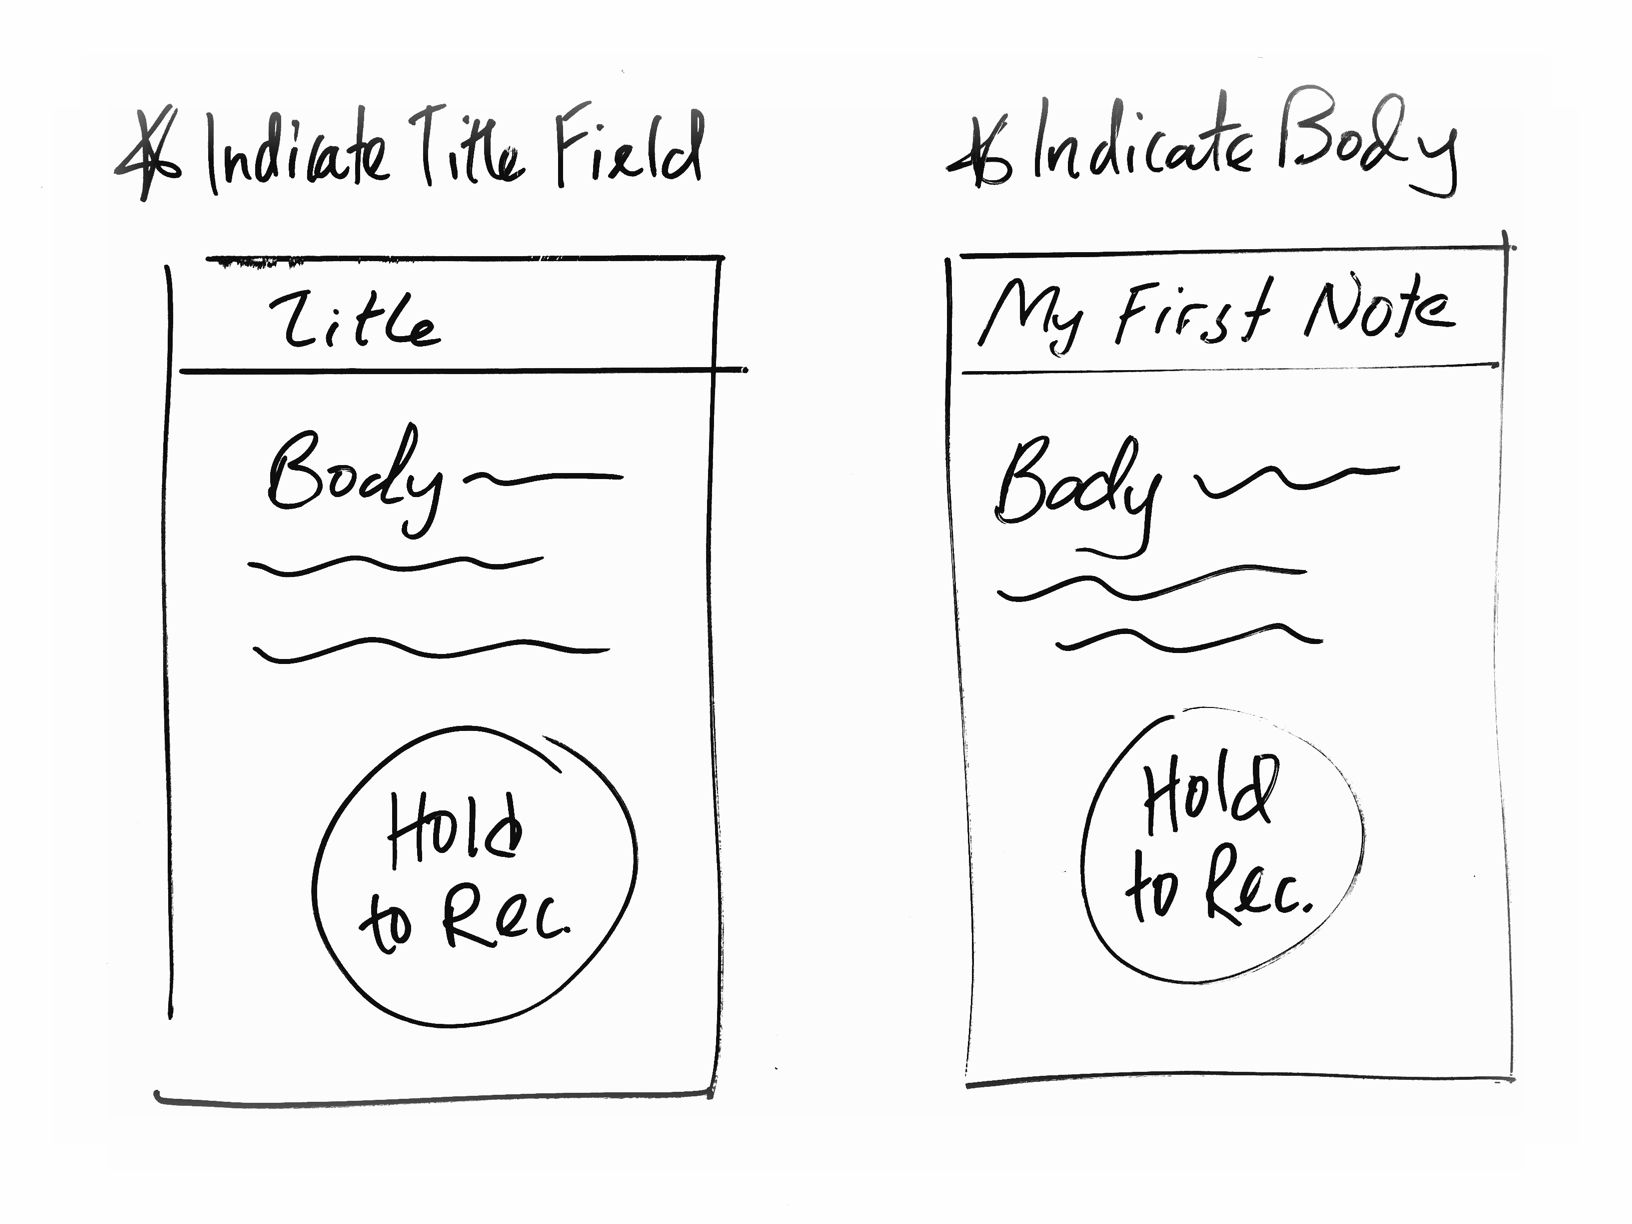 * Indicate Title Field
Title
Body
Hold
to Rec.
* Indicate Body
My First Note
Body
Hold
to Rec.